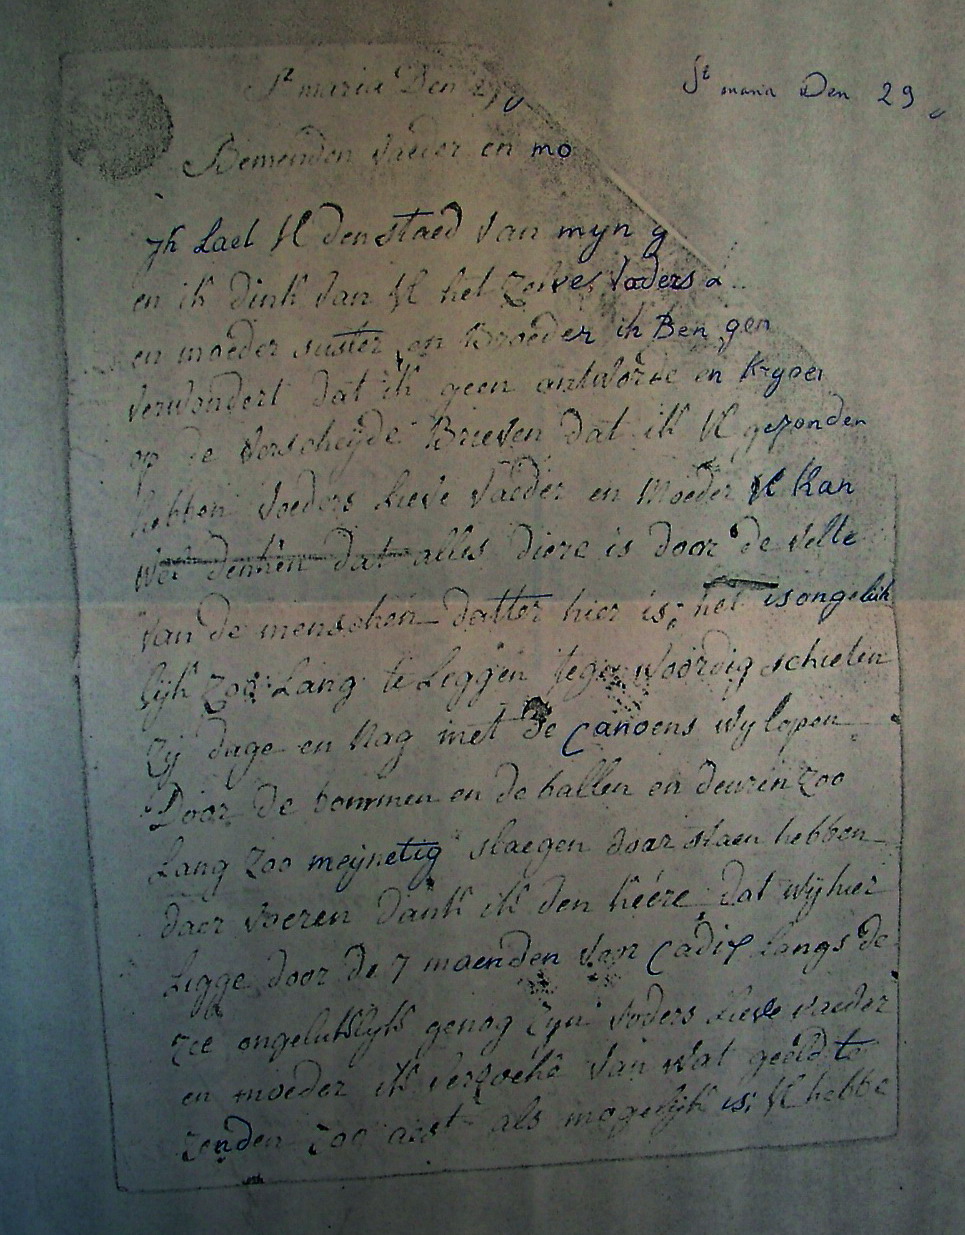 St maria Den 29
St maria Den 29
Bemenden vaeder en mo
yk Laet U den staed van myn g
en ik dink van U het Zelve, voders a
en moeder suster en Broeder ik Ben gen
verwondert dat ik geen antworde en krygen
op de verscheyde Brieven dat ik U gezonden
hebben voeders Lieve vaeder en Moeder U kan
wel denken dat alles diere is door de velte
van de menschen datter hier is; het is ongeluk
lijk Zoo Lang te Leggen tegenwoordig schieten
zij dage en Nag met de Canoens wy lopen
Door de bommen en de ballen en deuren zoo
Lang Zoo meynetig slaegen door staen hebben
daer voeren dank ik den heere dat wij hier
Ligge door de 7 maenden voor Cadix Langs de
zee ongeluklyk genog Zyn voders Lieve vaeder
en moeder ik verzoeke van wat geeld te
zenden zoo aest als mogelijk is; U hebbe